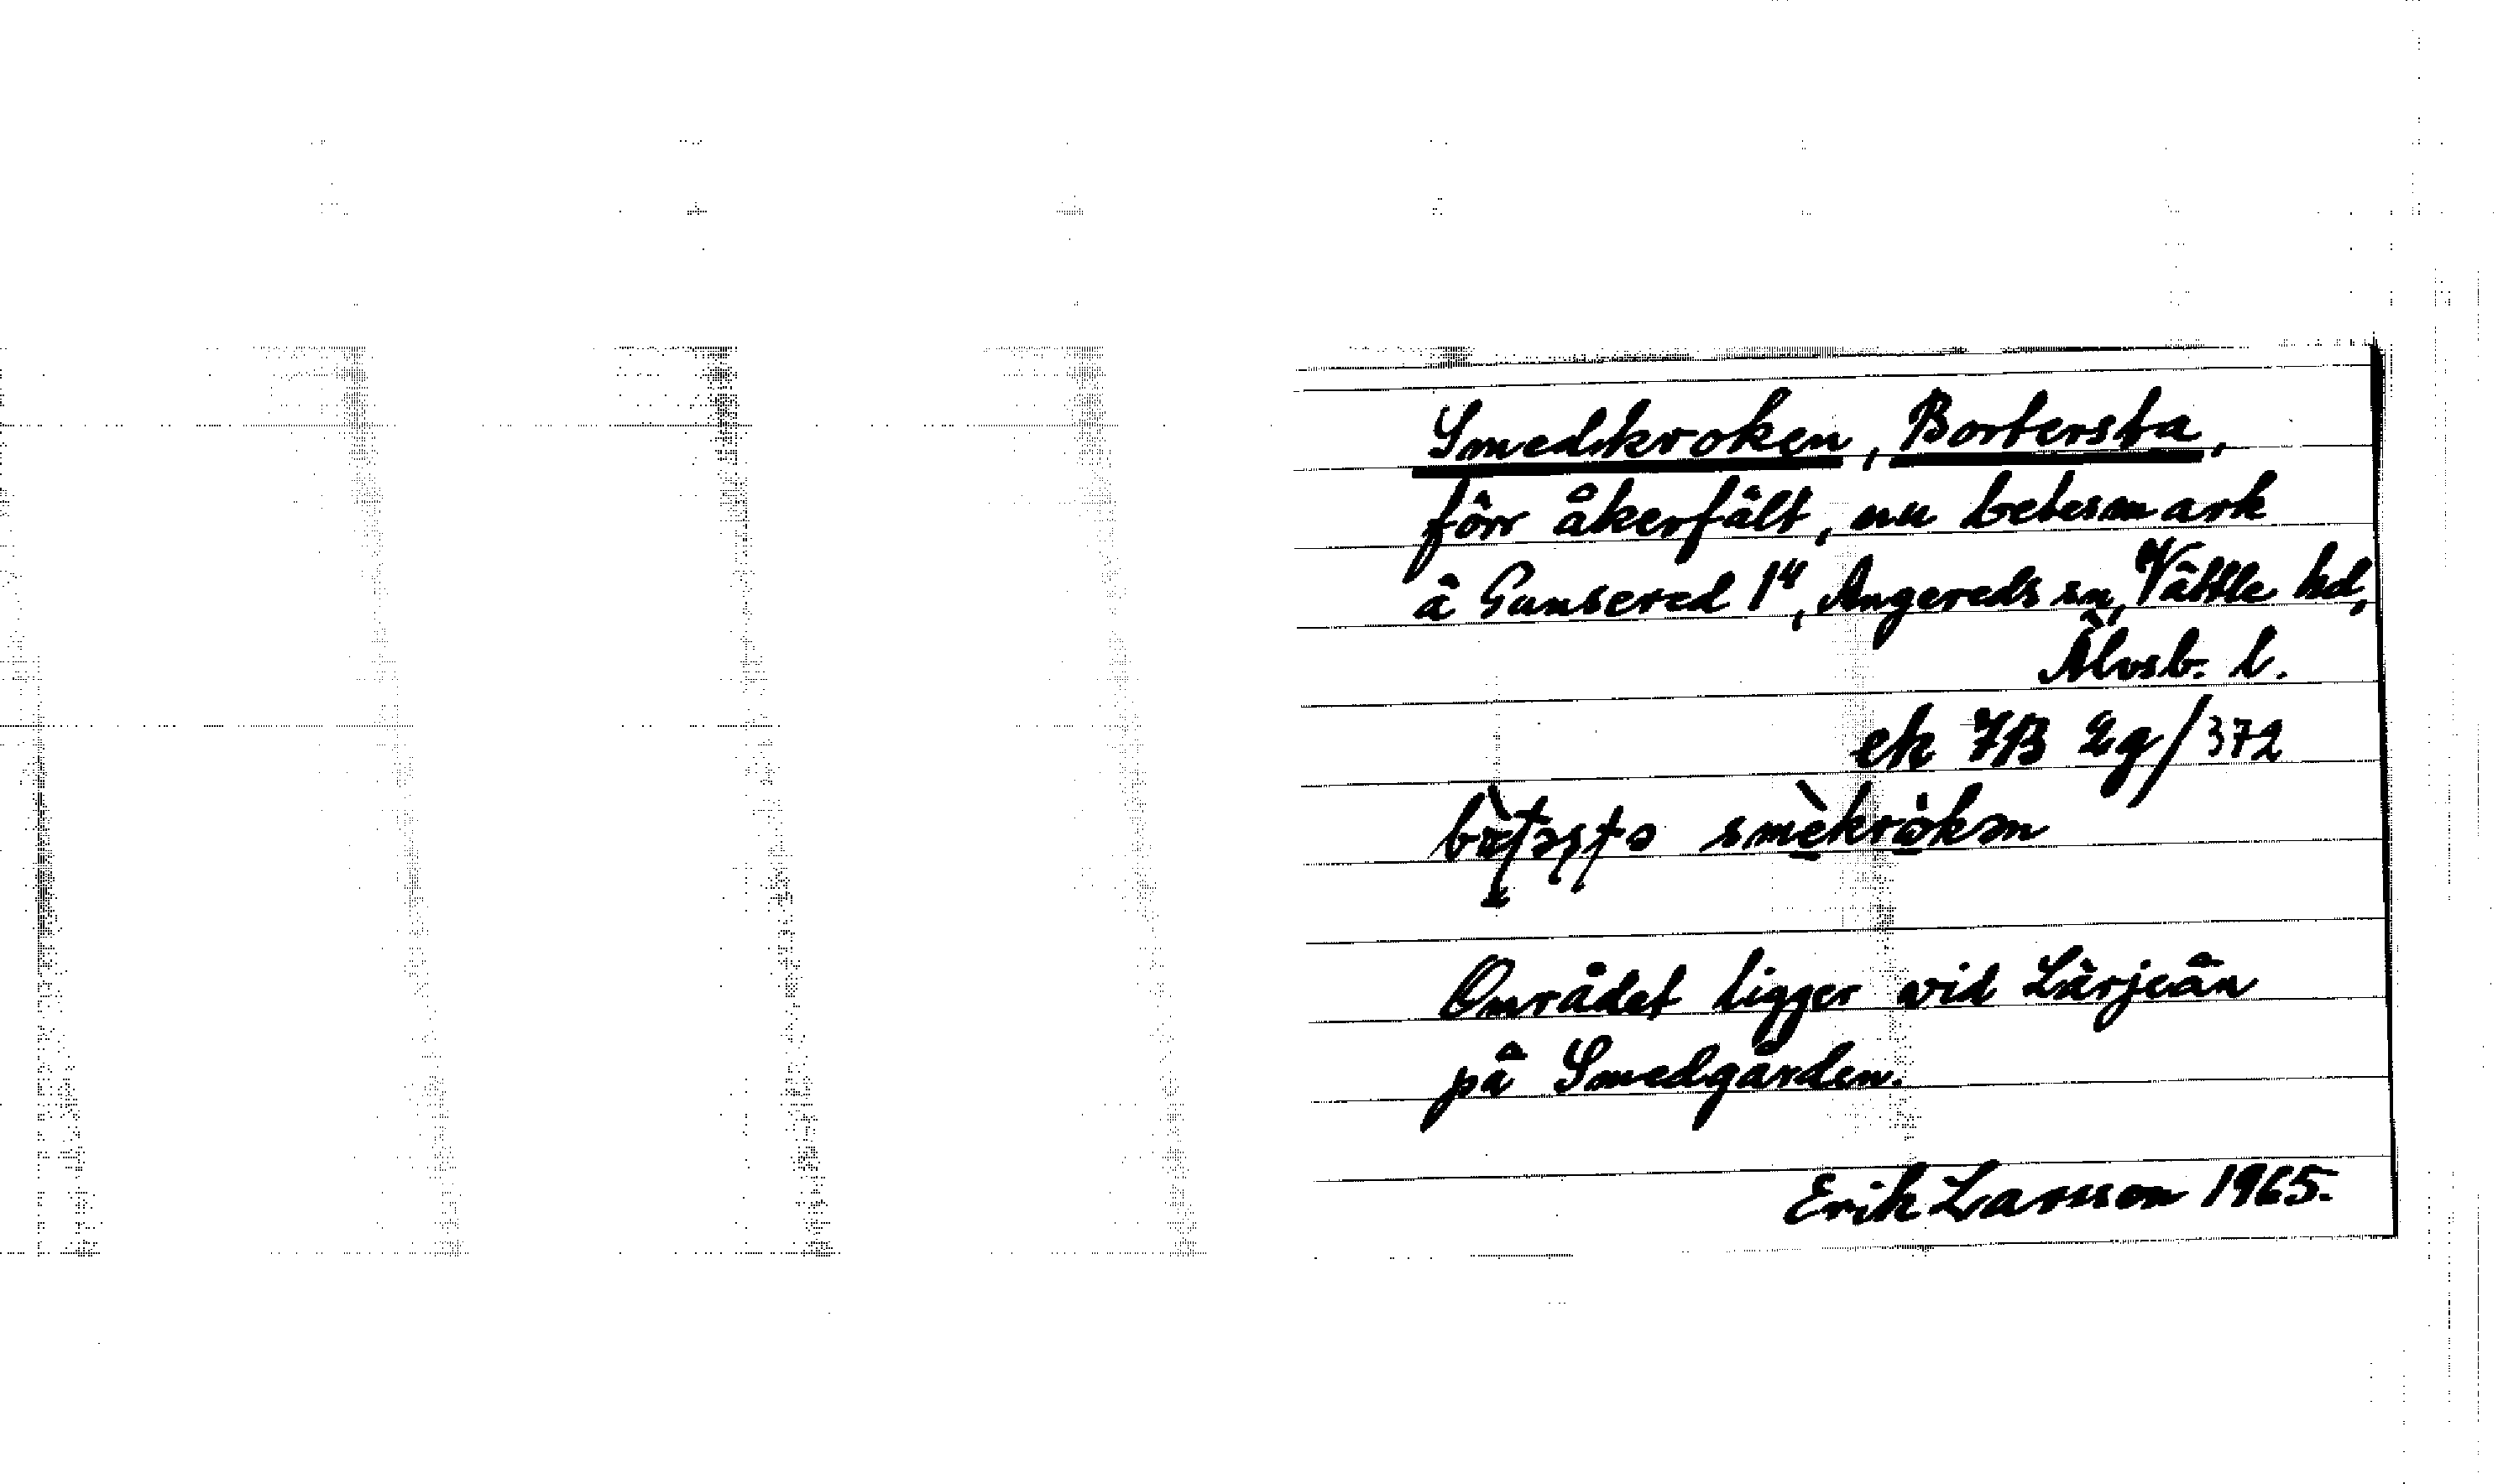 Smedkroken, Bortersta,
förr åkerfält, nu betesmark
å Gunsered 1⁴, Angereds sn, Vättle hd,
Älvsb. l.
ek 7B 2g/372
smèkròkən
Området ligger vid Lärjeån
på Smedgården.
Erik Larsson 1965.